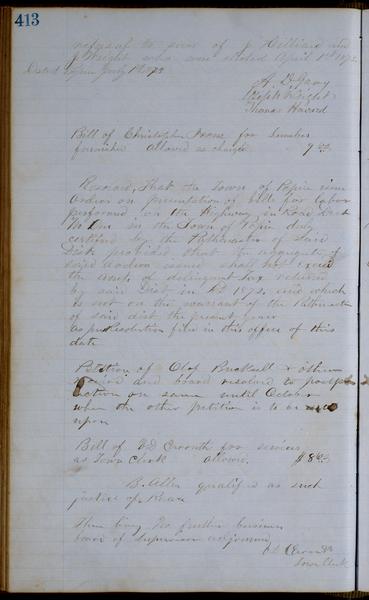 413
refusal to serve of J Hilliard and
J Wright who were elected April 1st 1872
Dated Pepin July 1st 1872
A. D. Gray
Joseph Wright
Thomas Harvard
Bill of Christopher for Lumber
furnished allowed as charged 9
Resolved, That the Town of Pepin issue
orders on presentation of bills for labor
performed on the Highway in Road Dist
No One in the Town of Pepin duly
certified by the Pathmaster of Said
Dist provided that the aggregate of
said orders issued shall not exceed
the amt of delinquent tax returned
by said Dist in A.D. 1872, and which
is not on the warrant of the Pathmaster
of said dist the present year
as per Resolution file in this office of this
date
Petition of Olof & others
and board resolved to postpone
action on same until October
when the other petition is to be
upon
Bill of for services
as Town Clerk allowed. $8
B. Allen qualified as such
justice of Peace
There being No further business
board of supervisors adjourned
Town Clerk